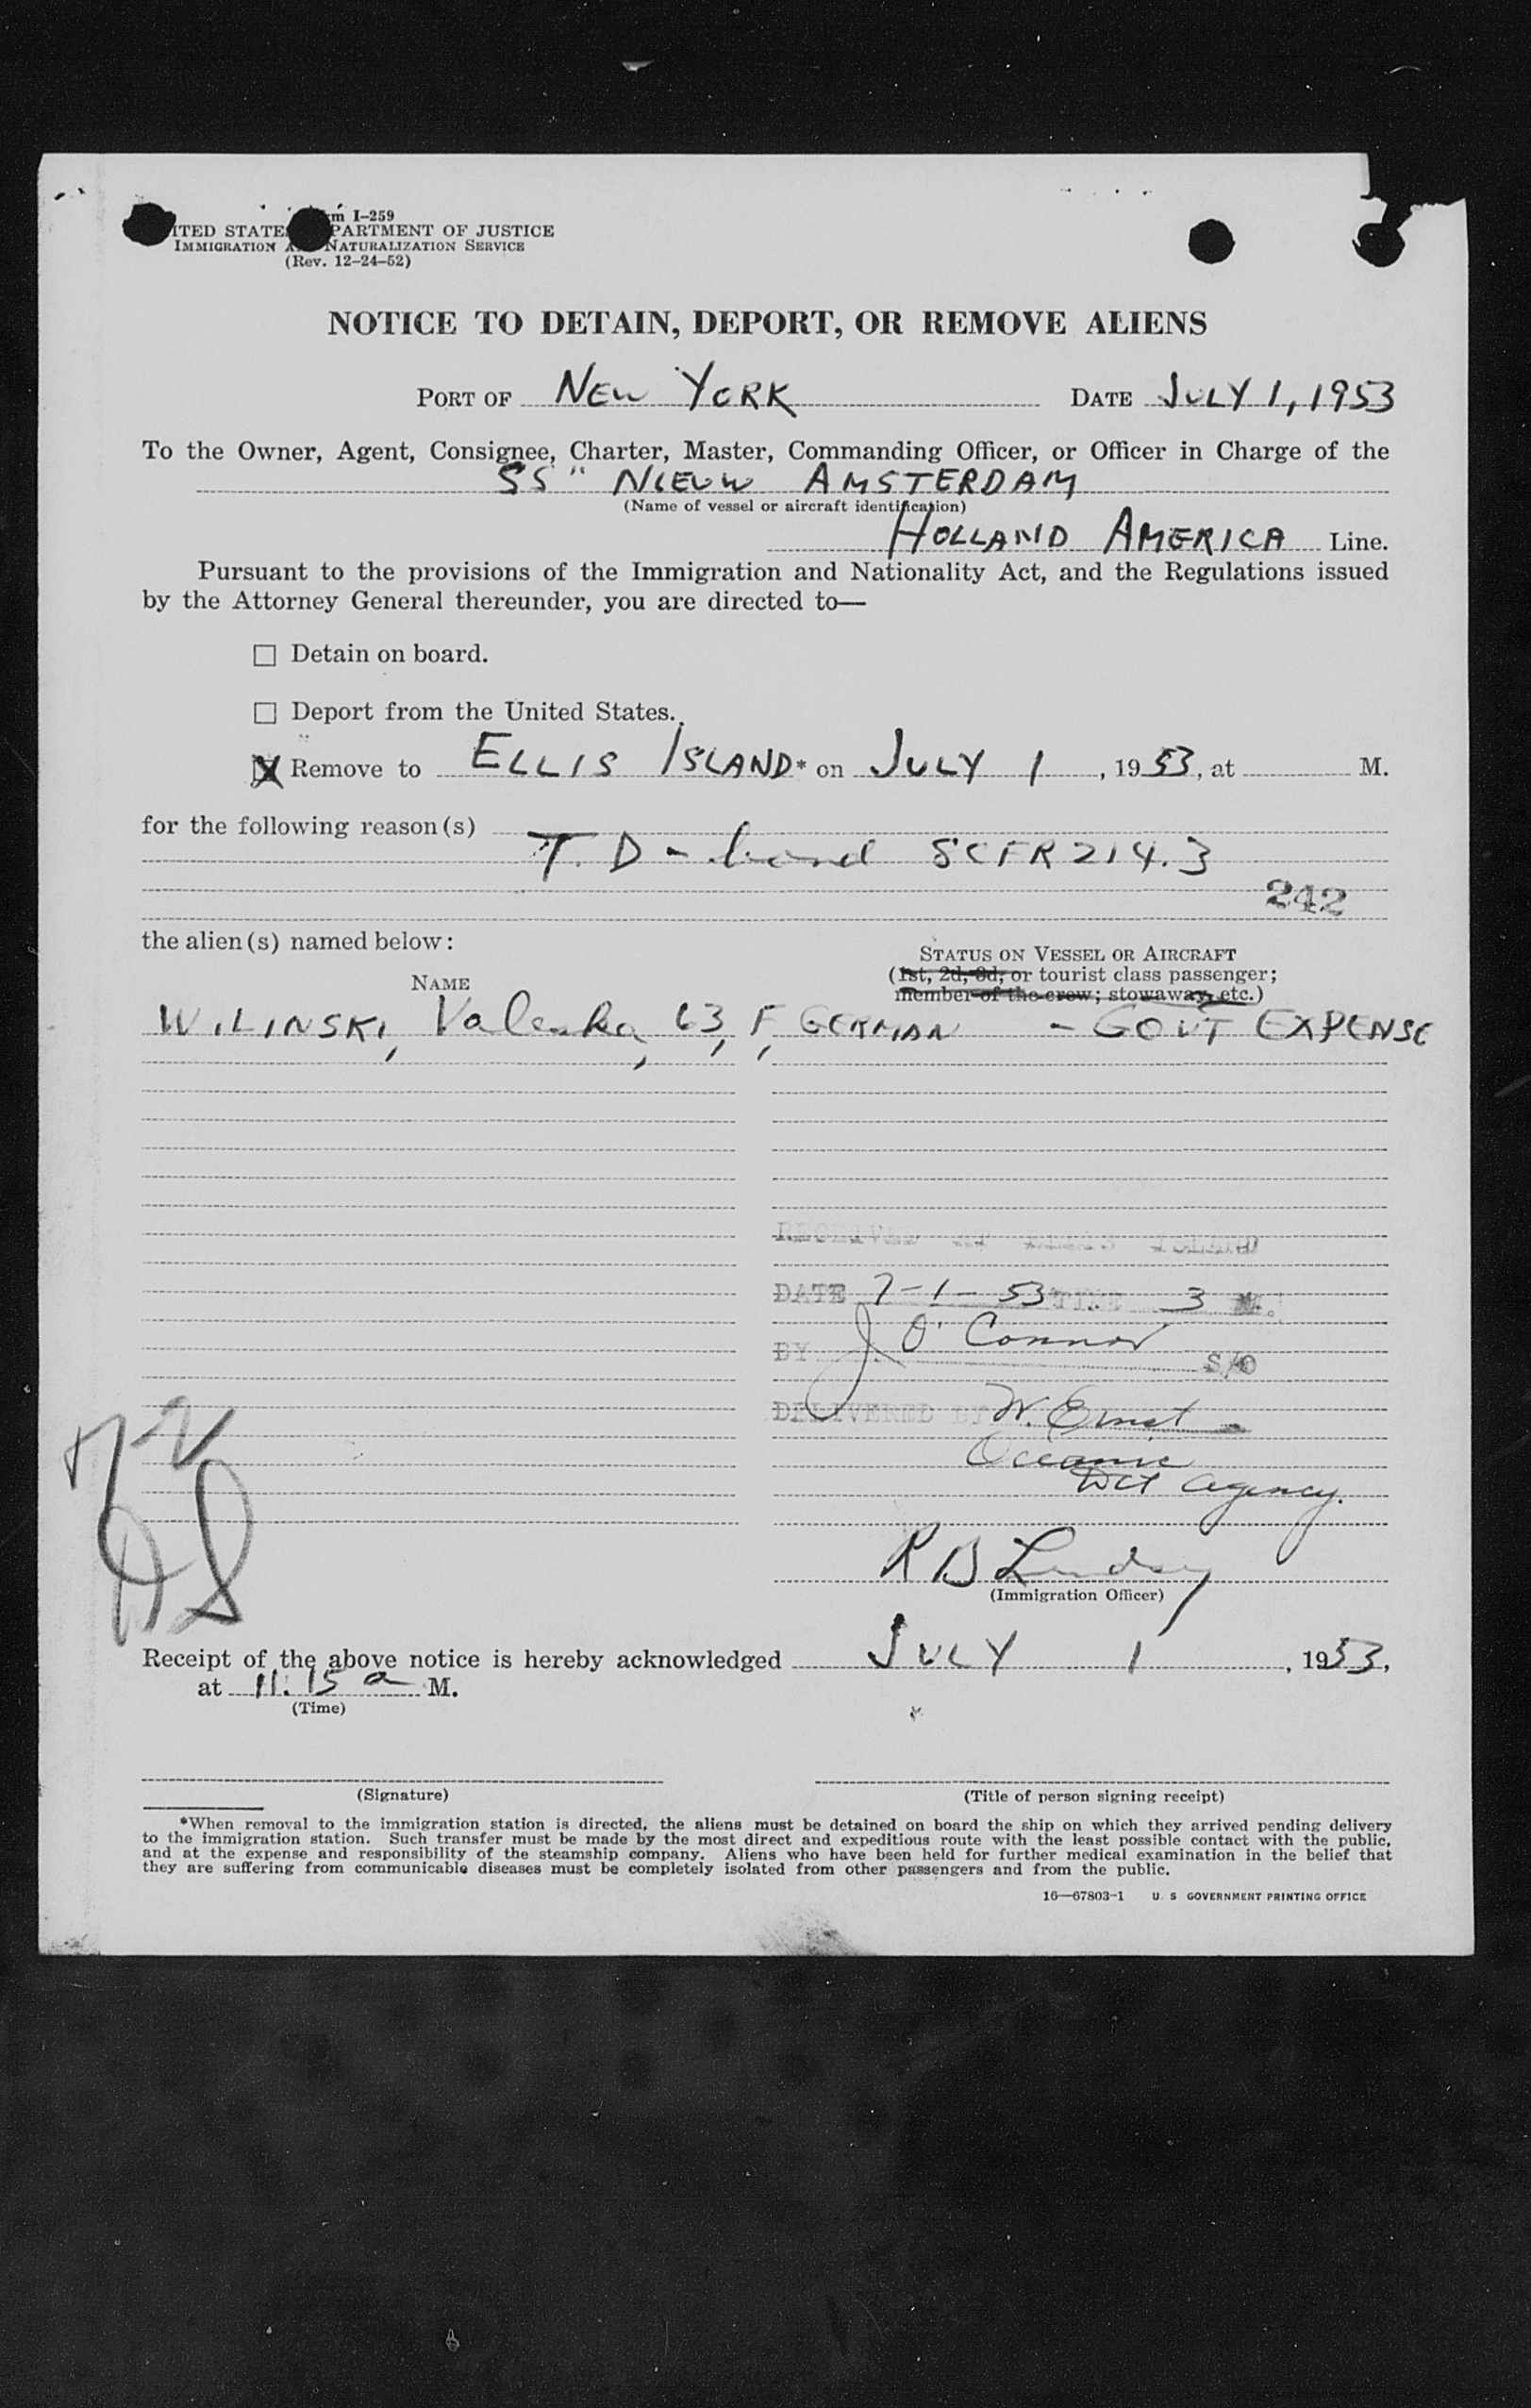 m I-259
ITED STATE PARTMENT OF JUSTICE
IMMIGRATION A NATURALIZATION SERVICE
(Rev. 12-24-52)
NOTICE TO DETAIN, DEPORT, OR REMOVE ALIENS
PORT OF NEW YORK DATE JULY 1, 1953
To the Owner, Agent, Consignee, Charter, Master, Commanding Officer, or Officer in Charge of the
SS " NIEUW AMSTERDAM
(Name of vessel or aircraft identification)
HOLLAND AMERICA Line.
Pursuant to the provisions of the Immigration and Nationality Act, and the Regulations issued
by the Attorney General thereunder, you are directed to—
☐ Detain on board.
☐ Deport from the United States.
☒ Remove to ELLIS ISLAND* on JULY 1, 1953, at M.
for the following reason(s)
T. D - bond 8CFR 214.3
242
the alien(s) named below:
STATUS ON VESSEL OR AIRCRAFT
(1st, 2d, 3d, or tourist class passenger;
NAME
member of the crew; stowaway, etc.)
WILINSKI, Valeska, 63, F, GERMAN - GOVT EXPENSE
RECEIVED AT ELLIS ISLAND
DATE 7-1-53 TIME 3 M.
BY J O'Connor S/O
DELIVERED BY W. Ernst
Oceanic
Det agency.
R B Lindsy
(Immigration Officer)
Receipt of the above notice is hereby acknowledged JULY 1, 1953,
at 11.15 a M.
(Time)
(Signature) (Title of person signing receipt)
*When removal to the immigration station is directed, the aliens must be detained on board the ship on which they arrived pending delivery
to the immigration station. Such transfer must be made by the most direct and expeditious route with the least possible contact with the public,
and at the expense and responsibility of the steamship company. Aliens who have been held for further medical examination in the belief that
they are suffering from communicable diseases must be completely isolated from other passengers and from the public.
16—67803-1 U. S GOVERNMENT PRINTING OFFICE